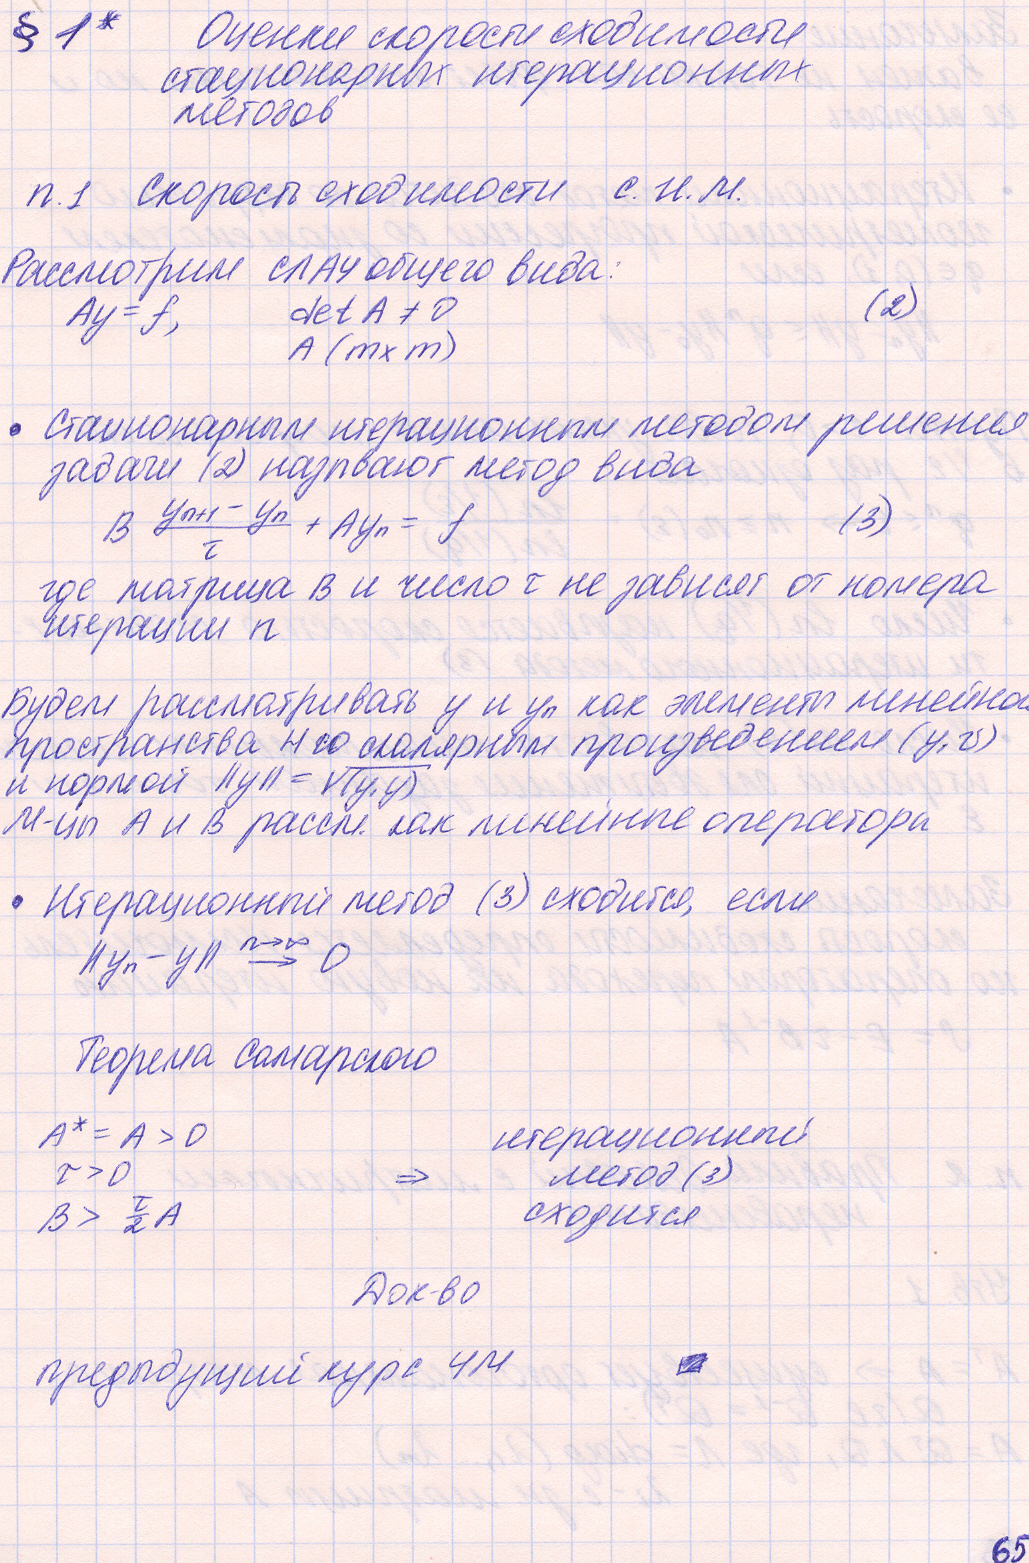 § 1* Оценки скорости сходимости
стационарных итерационных
методов
п.1 Скорость сходимости с.и.м.
Рассмотрим СЛАУ общего вида:
Ay = f, det A ≠ 0 (2)
A (m×m)
• Стационарным итерационным методом решения
задачи (2) называют метод вида
B (yₙ₊₁ - yₙ)/τ + Ayₙ = f (3)
где матрица B и число τ не зависят от номера
итерации n
Будем рассматривать y и yₙ как элементы линейного
пространства H со скалярным произведением (y,v)
и нормой ||y|| = √(y,y)
М-цы A и B рассм. как линейные оператора
• Итерационный метод (3) сходится, если
||yₙ - y|| →(n→∞) 0
Теорема Самарского
A* = A > 0 итерационный
τ > 0 ⇒ метод (3)
B > τ/2 A сходится
Док-во
предыдущий курс ЧМ
65